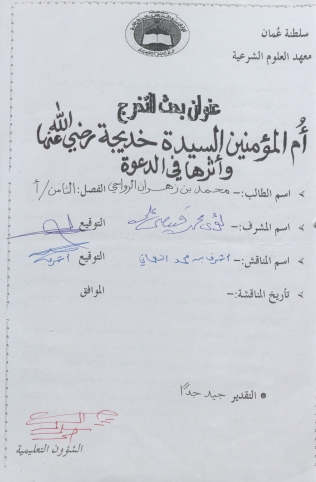 سلطنة عُمان
معهد العلوم الشرعية
عنوان بحث التخرج
أم المؤمنين السيدة خديجة رضي الله عنها
وأثرها في الدعوة
اسم الطالب:- محمد بن زهران الرواحي الفصل: الثامن/أ
اسم المشرف:- التوقيع
اسم المناقش:- أشرف بن محمد التوقيع أشرف
تأريخ المناقشة:- الموافق
التقدير جيد جدًا
الشؤون التعليمية